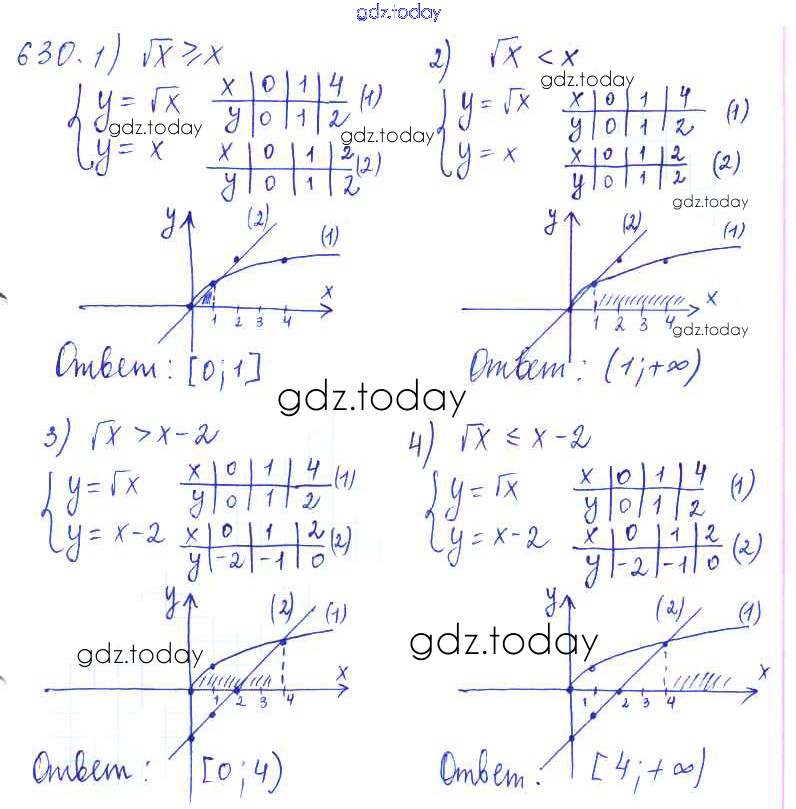 gdz.today
630. 1) √x ≥ x
{ y = √x
x | 0 | 1 | 4
y | 0 | 1 | 2 (1)
gdz.today
gdz.today
y = x
x | 0 | 1 | 2
y | 0 | 1 | 2 (2)
y (2) (1)
x
1 2 3 4
Ответ: [0; 1]
2) √x < x
gdz.today
{ y = √x
x | 0 | 1 | 4
y | 0 | 1 | 2 (1)
y = x
x | 0 | 1 | 2
y | 0 | 1 | 2 (2)
gdz.today
y (2) (1)
x
1 2 3 4
gdz.today
Ответ: (1; +∞)
gdz.today
3) √x > x - 2
{ y = √x
x | 0 | 1 | 4
y | 0 | 1 | 2 (1)
y = x - 2
x | 0 | 1 | 2
y | -2 | -1 | 0 (2)
y (2) (1)
gdz.today
x
1 2 3 4
Ответ: [0; 4)
4) √x ≤ x - 2
{ y = √x
x | 0 | 1 | 4
y | 0 | 1 | 2 (1)
y = x - 2
x | 0 | 1 | 2
y | -2 | -1 | 0 (2)
y (2) (1)
gdz.today
x
1 2 3 4
Ответ: [4; +∞)